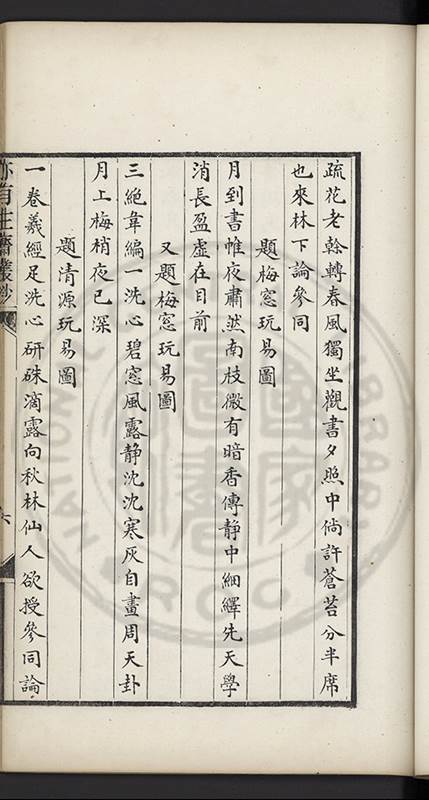 疏花老榦轉春風獨坐觀書夕照中倘許蒼苔分半席
也來林下論參同
題梅窓玩易圖
月到書帷夜肅然南枝微有暗香傳靜中細繹先天學
消長盈虛在目前
又題梅窓玩易圖
三絕韋編一洗心碧窓風露靜沈沈寒灰自畫周天卦
月上梅梢夜已深
題清源玩易圖
一卷羲經足洗心研硃滴露向秋林仙人欲授參同論
亦有生齋叢鈔
六